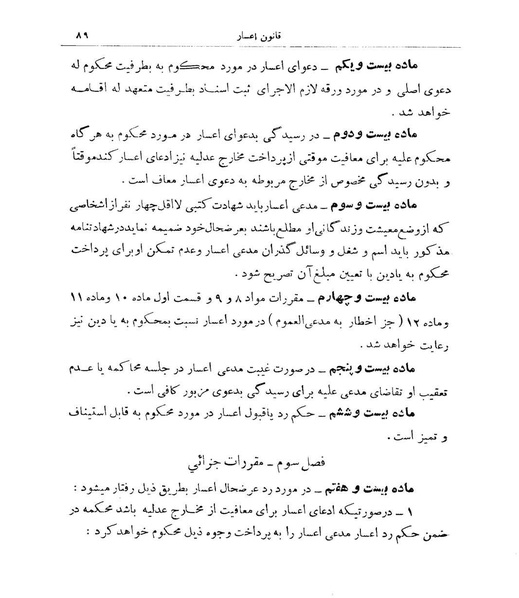 قانون إعسار
۸۹
ماده بیست و یکم ــ دعوای اعسار در مورد محکوم به بطرفیت محکوم له
دعوی اصلی و در مورد ورقه لازم الاجرای ثبت اسناد بطرفیت متعهد له اقامه
خواهد شد .
ماده بیست ودوم ــ در رسیدگی بدعوای اعسار در مورد محکوم به هرگاه
محکوم علیه برای معافیت موقتی از پرداخت مخارج عدلیه نیز ادعای اعسار کند موقتاً
و بدون رسیدگی مخصوص از مخارج مربوطه به دعوی اعسار معاف است .
ماده بیست و سوم ــ مدعی اعسار باید شهادت کتبی لااقل چهار نفر از اشخاصی
که از وضع معیشت و زندگانی او مطلع باشند بعرضحال خود ضمیمه نماید در شهادتنامه
مذکور باید اسم و شغل و وسائل گذران مدعی اعسار و عدم تمکن او برای پرداخت
محکوم به یا دین با تعیین مبلغ آن تصریح شود .
ماده بیست و چهارم ــ مقررات مواد ۸ و ۹ و قسمت اول ماده ۱۰ و ماده ۱۱
و ماده ۱۲ ( جز اخطار به مدعی العموم ) در مورد اعسار نسبت بمحکوم به یا دین نیز
رعایت خواهد شد .
ماده بیست و پنجم ــ در صورت غیبت مدعی اعسار در جلسه محاکمه یا عدم
تعقیب او تقاضای مدعی علیه برای رسیدگی بدعوی مزبور کافی است .
ماده بیست و ششم ــ حکم رد یا قبول اعسار در مورد محکوم به قابل استیناف
و تمیز است .
فصل سوم ــ مقررات جزائي
ماده بیست و هفتم ــ در مورد رد عرضحال اعسار بطریق ذیل رفتار میشود :
۱ ــ در صورتیکه ادعای اعسار برای معافیت از مخارج عدلیه باشد محکمه در
ضمن حکم رد اعسار مدعی اعسار را به پرداخت وجوه ذیل محکوم خواهد کرد :